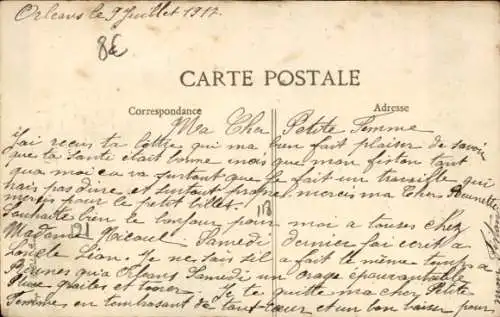 Orleans le 9 Juillet 1917.
8£
CARTE POSTALE
Correspondance
Adresse
Ma Cher Petite Femme
J'ai recus ta lettre qui ma bien fait plaisir de savoir
que ta santé était bonne mais que mon fiston tant
qua moi ca va surtout que je fait un travaille qui
nais pas dure et surtout propre mercis ma Cher Brunette
mercis pour le petit billet.
Souhaite bien le bonjour pour moi a touses chez
118
Madame Nicoul. Samedi dernier j'ai ecrit a
121
Loncle Léon. Je ne sais sil a fait le même temps a
qua Orleans Samedi un orage épouvantable
Pluie grailes et toner. Je te quitte ma cher Petite
Femme en tembrasant de tout cœur et un bon baiser pour